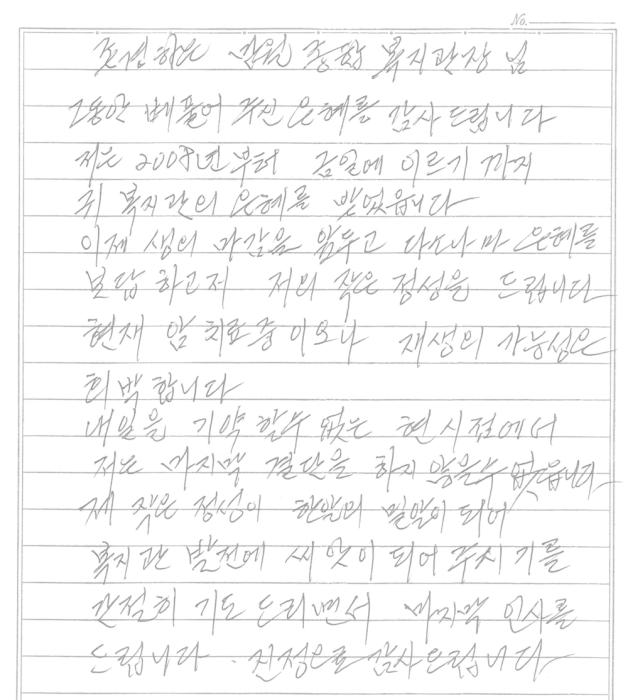 No.
존경하는 종합 복지관장 님
그동안 베풀어 주신 은혜를 감사드립니다
저는 2008년부터 금일에 이르기 까지
귀 복지관의 은혜를 받었읍니다
이제 생의 마감을 앞두고 다소나마 은혜를
보답 하고저 저의 작은 정성을 드립니다
현재 암 치료중이오나 재생의 가능성은
희박 합니다
내일을 기약 할수 없는 현 시점에서
저는 마지막 결단을 하지 않을수 없읍니다
제 작은 정성이 한알의 밀알이 되어
복지관 발전에 씨앗이 되어 주시기를
간절히 기도 드리면서 마지막 인사를
드립니다. 진정으로 감사드립니다